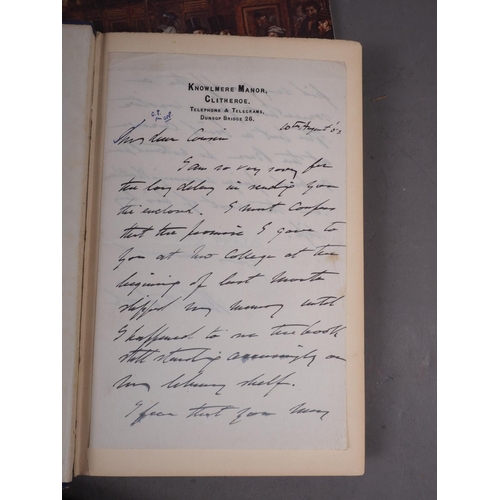 KNOWLMERE MANOR,
CLITHEROE.
TELEPHONE & TELEGRAMS,
DUNSOP BRIDGE 26.
10th August '53
My dear Cousin
I am so very sorry for
the long delay in sending you
the enclosed. I must confess
that the promise I gave to
you at New College at the
beginning of last month
slipped my memory until
I happened to see the book
still standing accusingly on
my library shelf.
I fear that you may